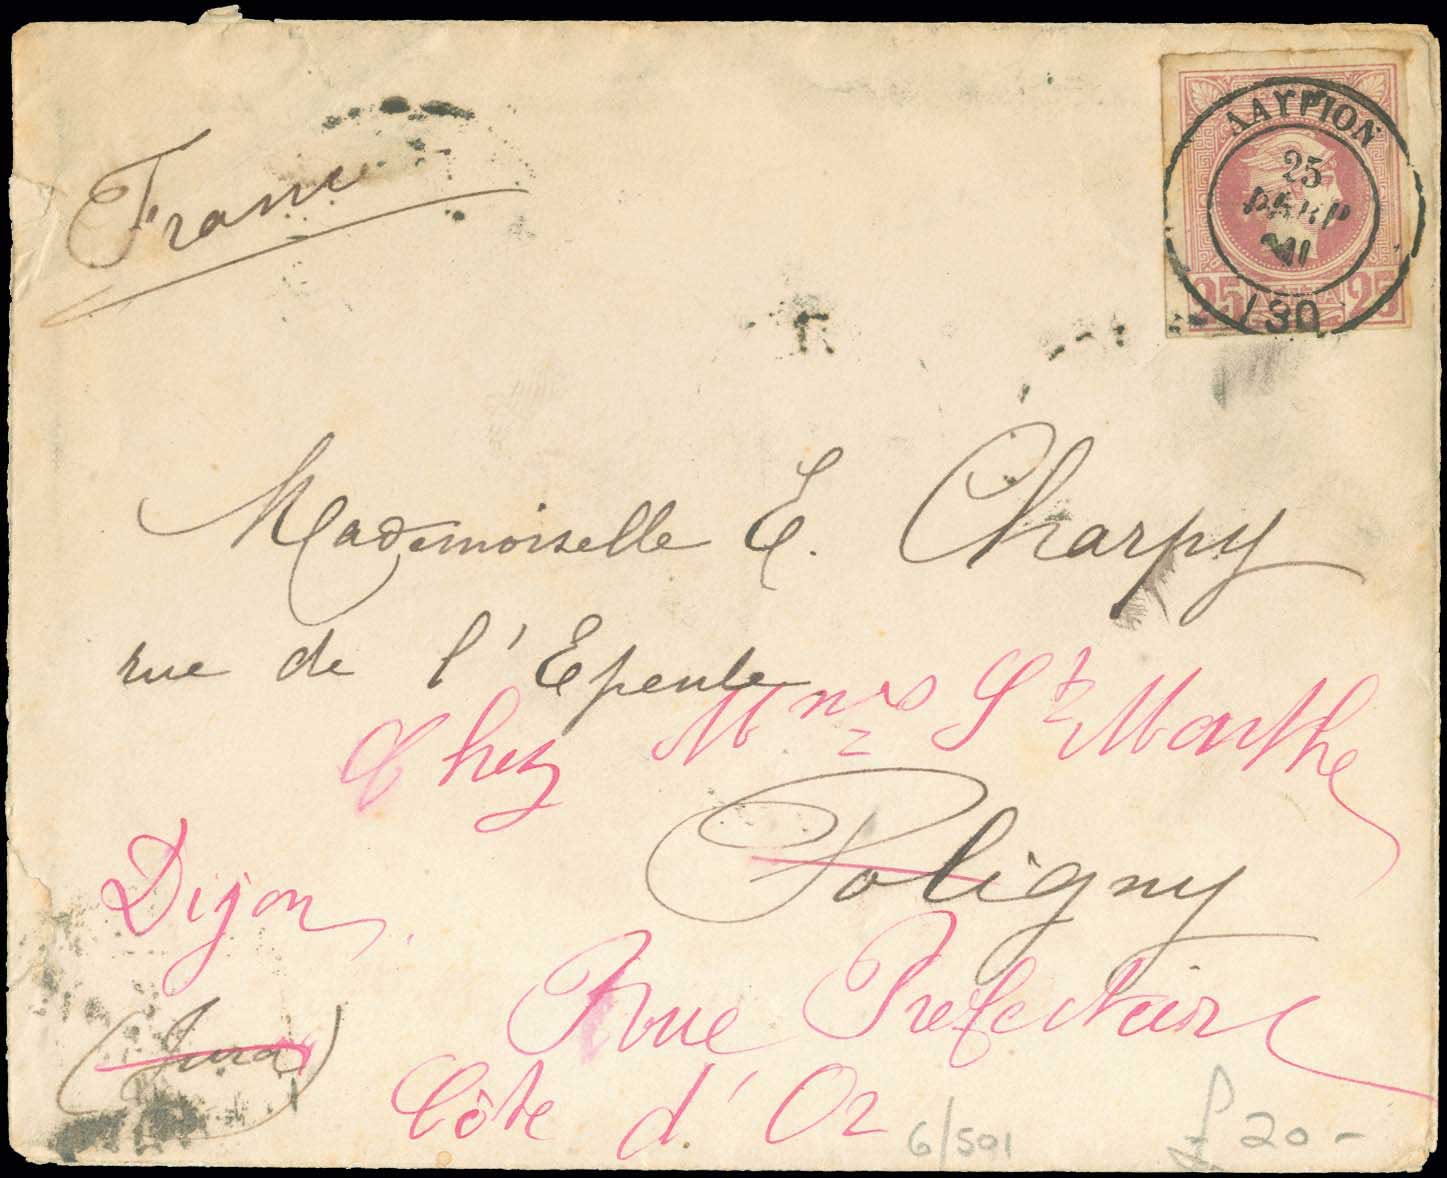 France
ΛΑΥΡΙΟΝ
25
130
25 25
Mademoiselle E. Charpy
rue de l'Epeule
Chez Mmes Ste Marthe
Poligny
Dijon
Rue Prefecture
(Jura)
Côte d'Or
6/501
£ 20-